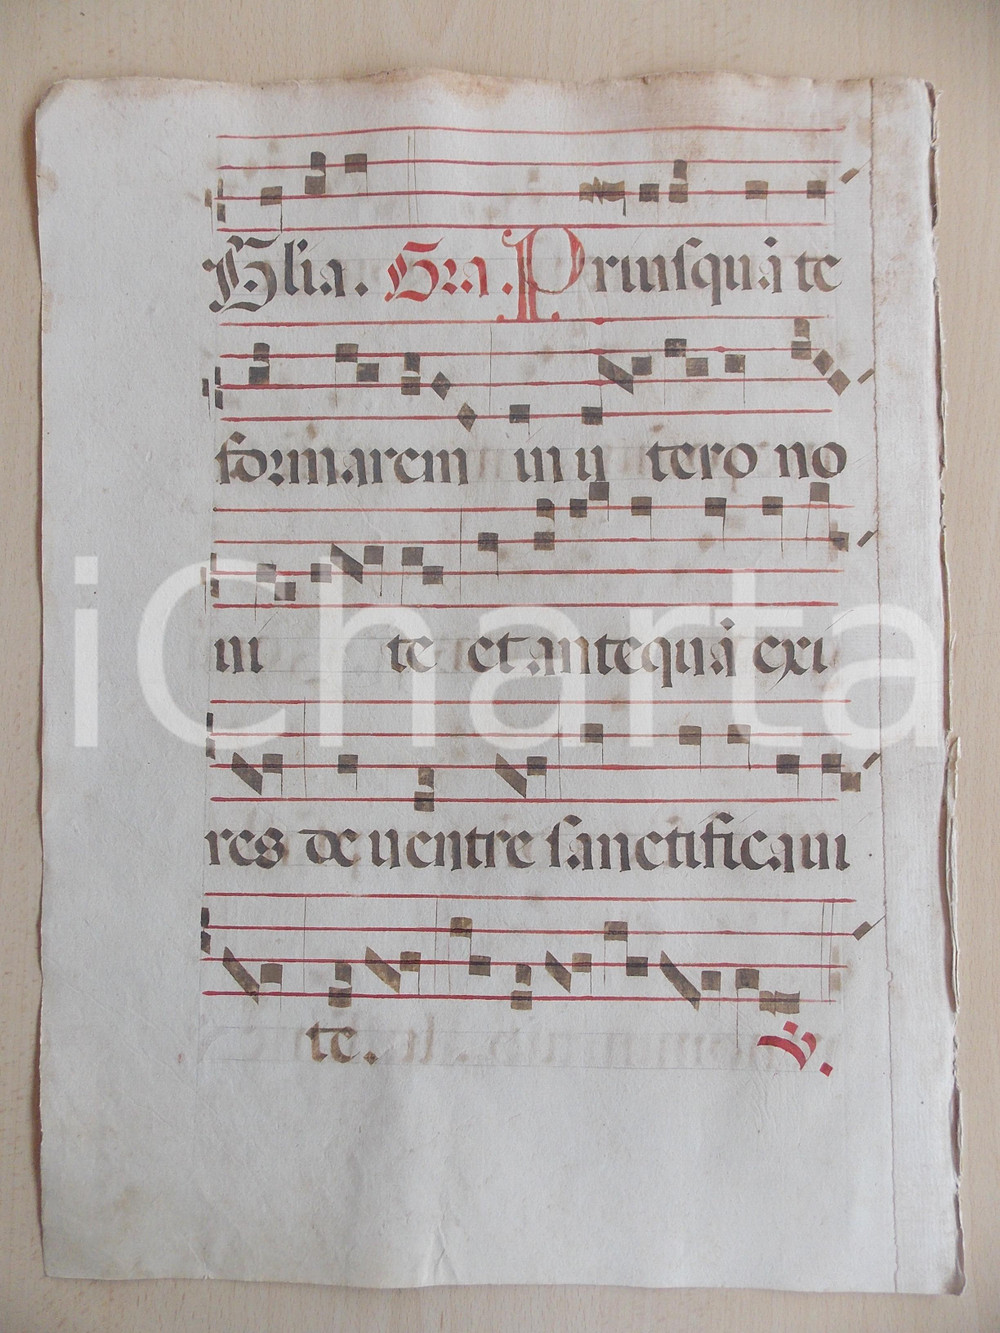 Glia. Gra. Priusquā te
formarem in u tero no
ui te et antequā exi
res de uentre sanctificaui
te. V.
iCharta